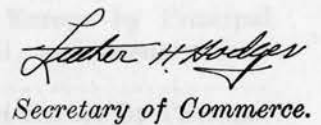 Luther H. Hodges
Secretary of Commerce.